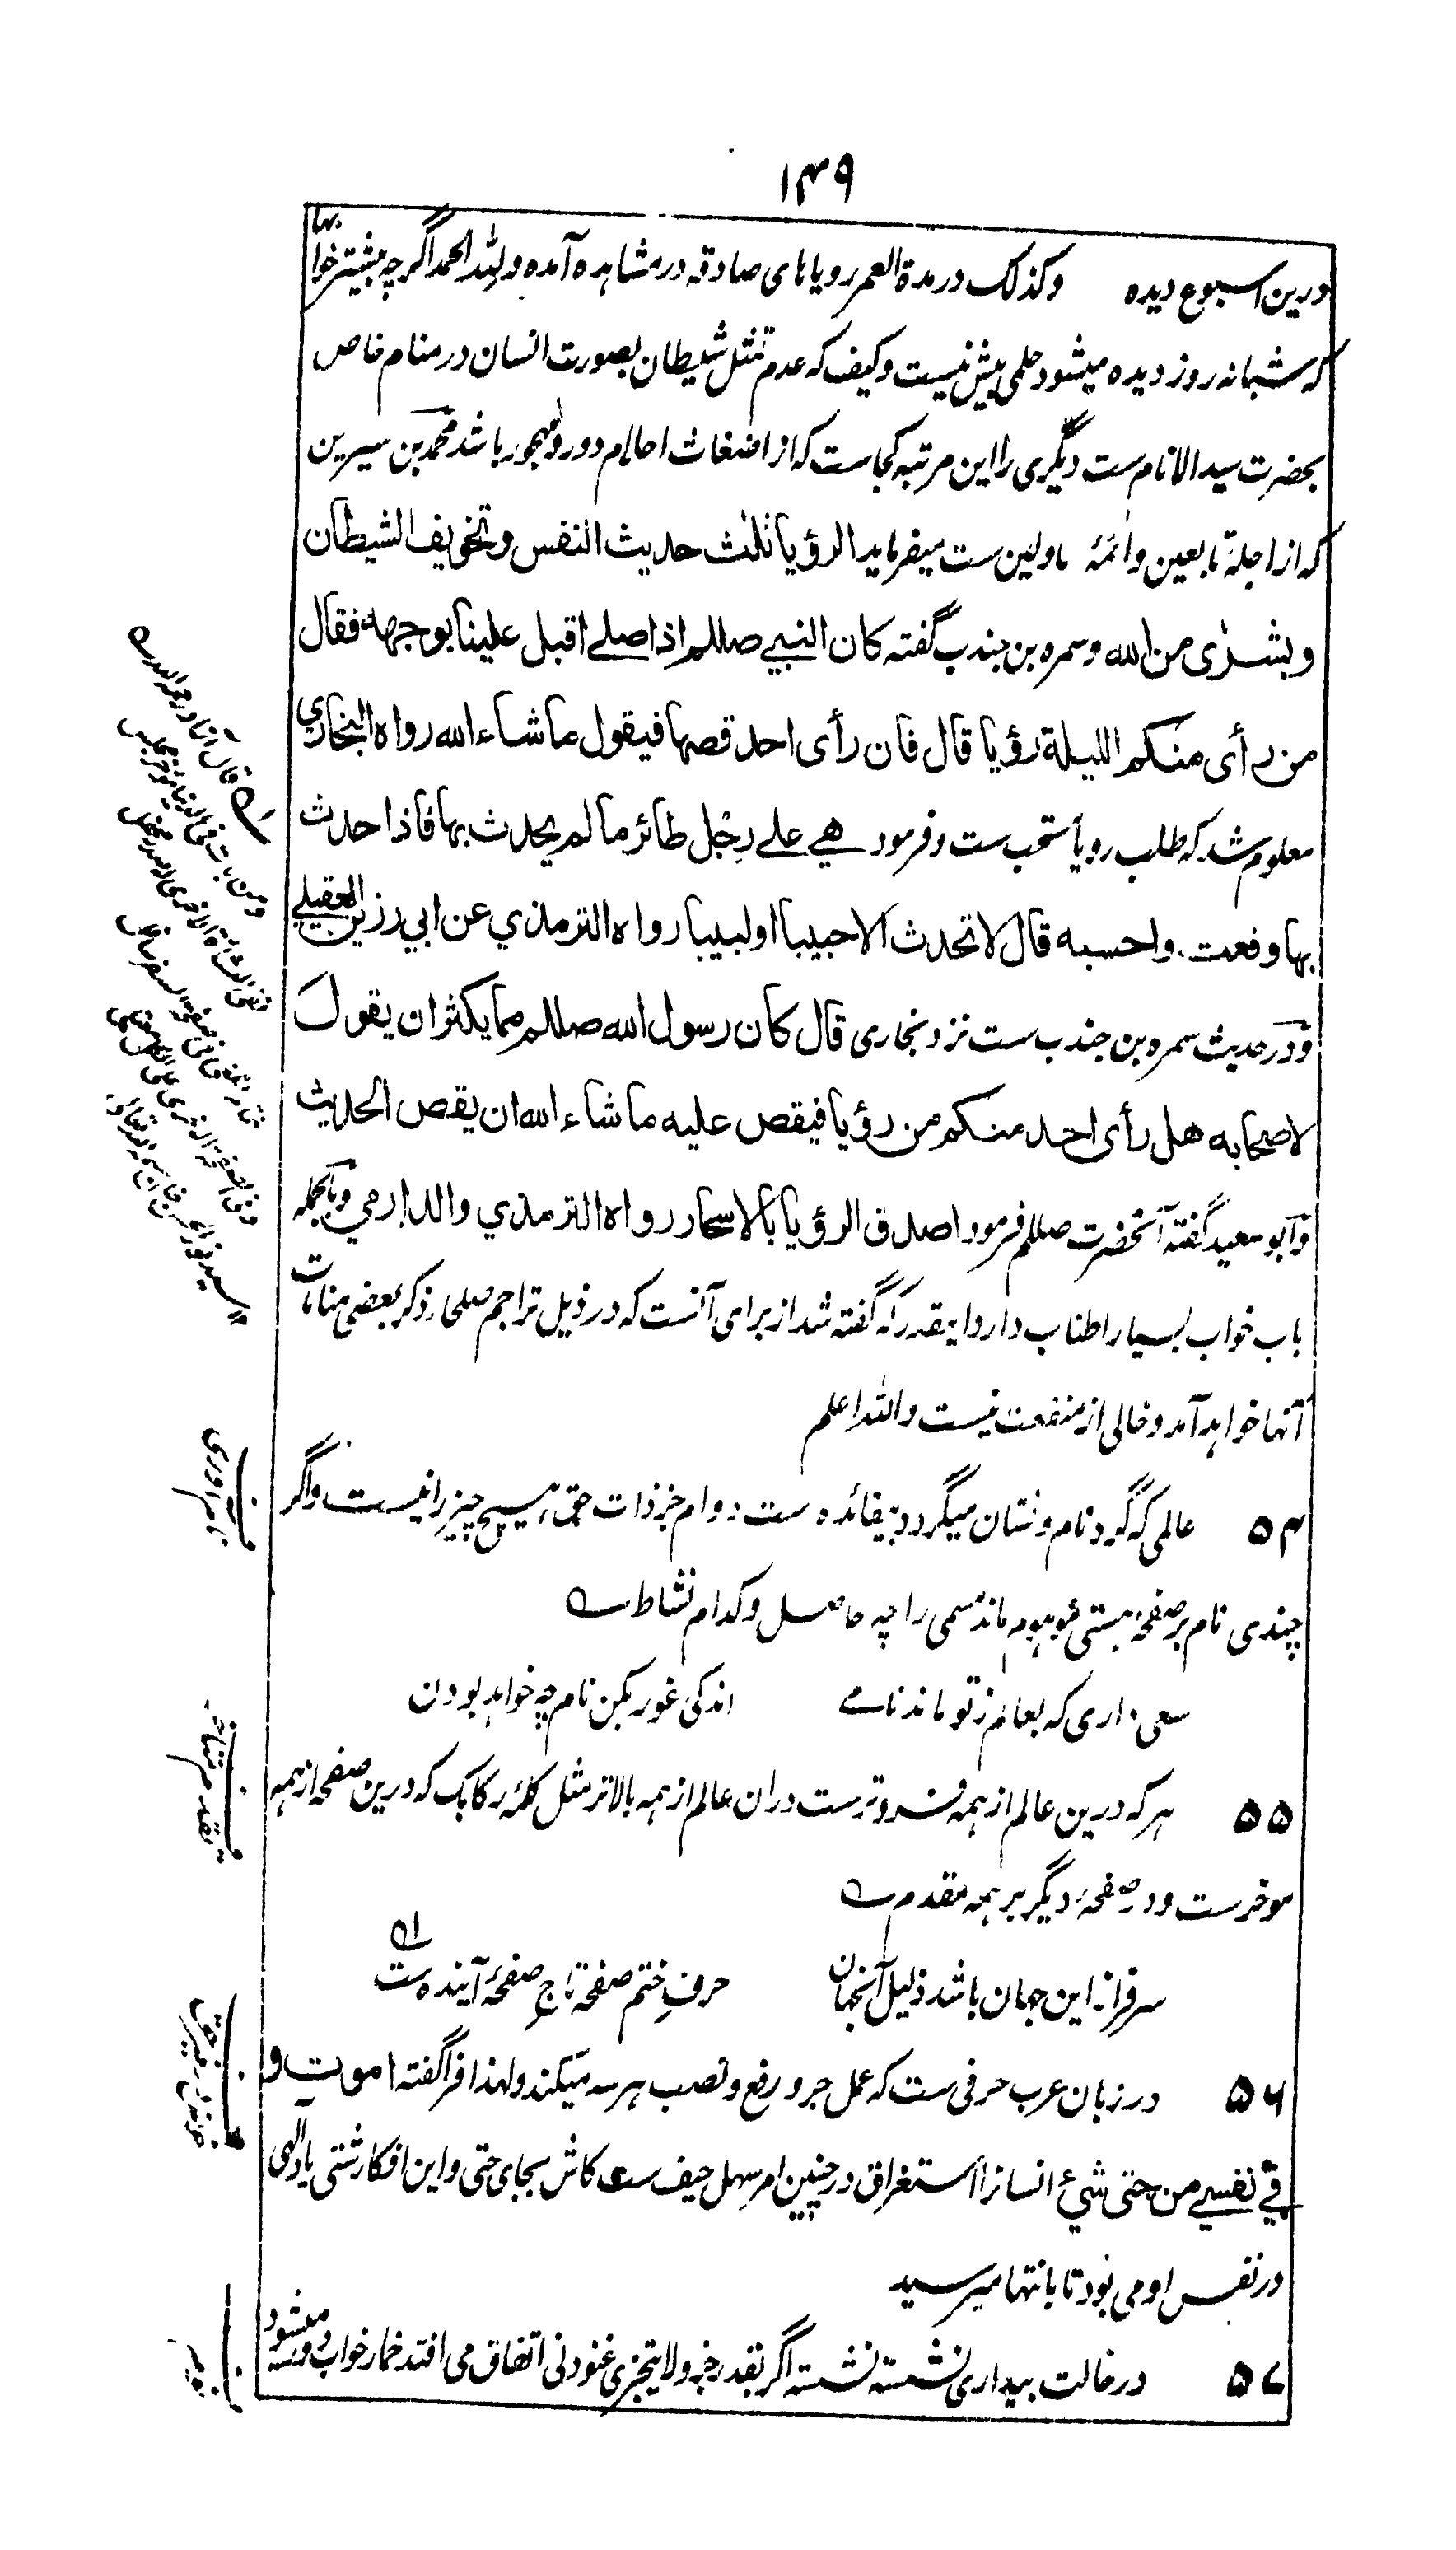 ۱۴۹
درین اسبوع دیده وکذلک در مدة العمر رویاهای صادقه در مشاهده آمده و لله الحمد اگرچه بیشتر خوابها
که شبانه روز دیده میشود حلمی بیش نیست و کیف که عدم تمثل شیطان بصورت انسان در منام خاص
بحضرت سید الانام ست دیگری را این مرتبه کجاست که از اضغاث احلام دور و مهجور باشد محمد بن سیرین
که از اجلهٔ تابعین و ائمهٔ ماولین ست میفرماید الرؤیا ثلث حدیث النفس و تخویف الشیطان
و بشرٰی من الله و سمره بن جندب گفته کان النبي صللم اذا صلے اقبل علینا بوجهه فقال
من رأی منکم اللیلة رؤیا قال فان رأی احد قصها فیقول ما شاء الله رواه البخاري
معلوم شد که طلب رویا مستحب ست و فرمود هي علے رجل طائر ما لم یحدث بها فاذا حدث
بها وقعت . واحسبه قال لا تحدث الا حبیبا او لبیبا رواه الترمذي عن ابي رزین العقیلي
و در حدیث سمره بن جندب ست نزد بخاری قال کان رسول الله صللم مما یکثر ان یقول
لاصحابه هل رأی احد منکم من رؤیا فیقص علیه ما شاء الله ان یقص الحدیث
و ابو سعید گفته آنحضرت صللم فرمود اصدق الرؤیا بالاسحار رواه الترمذي والدارمي و بالجمله
باب خواب بسیار اطناب دارد اینقدر که گفته شد از برای آنست که در ذیل تراجم صلحاء ذکر بعضی منامات
آنها خواهد آمد و خالی از منفعت نیست والله اعلم
۵۴ عالمی که گرد نام و نشان میگردد بیفائده ست دوام جز ذات حق هیچ چیز را نیست و اگر
چندی نام بر صفحهٔ هستی موهومه ماند مسمی را چه حاصل و کدام نشاط ے
سعی داری که بعالم ز تو ماند نامے اندکی غور بکن نام چه خواهد بودن
۵۵ هر که درین عالم از همه فروتر ست دران عالم از همه بالاتر مثل کلمهٔ رکابک که درین صفحه از همه
موخرست و در صفحهٔ دیگر بر همه مقدم ے
سرفراز این جهان باشد ذلیل آنجهان حرف ختم صفحه تاج صفحهٔ آینده ست
۵۶ در زبان عرب حرفی ست که عمل جر و رفع و نصب هر سه میکند و لهذا فرا گفته اموت و
في نفسي من حتی شيء انسانرا استغراق در چنین امر سهل حیف ست کاش بجای حتی و این افکار شتی یاد الهی
در نفس او می بود تا بانتها میرسید
۵۷ در حالت بیداری نشسته نشسته اگر بقدر جزو لا یتجزی غنودنی اتفاق می افتد خمار خواب دور میشود
نام آوری